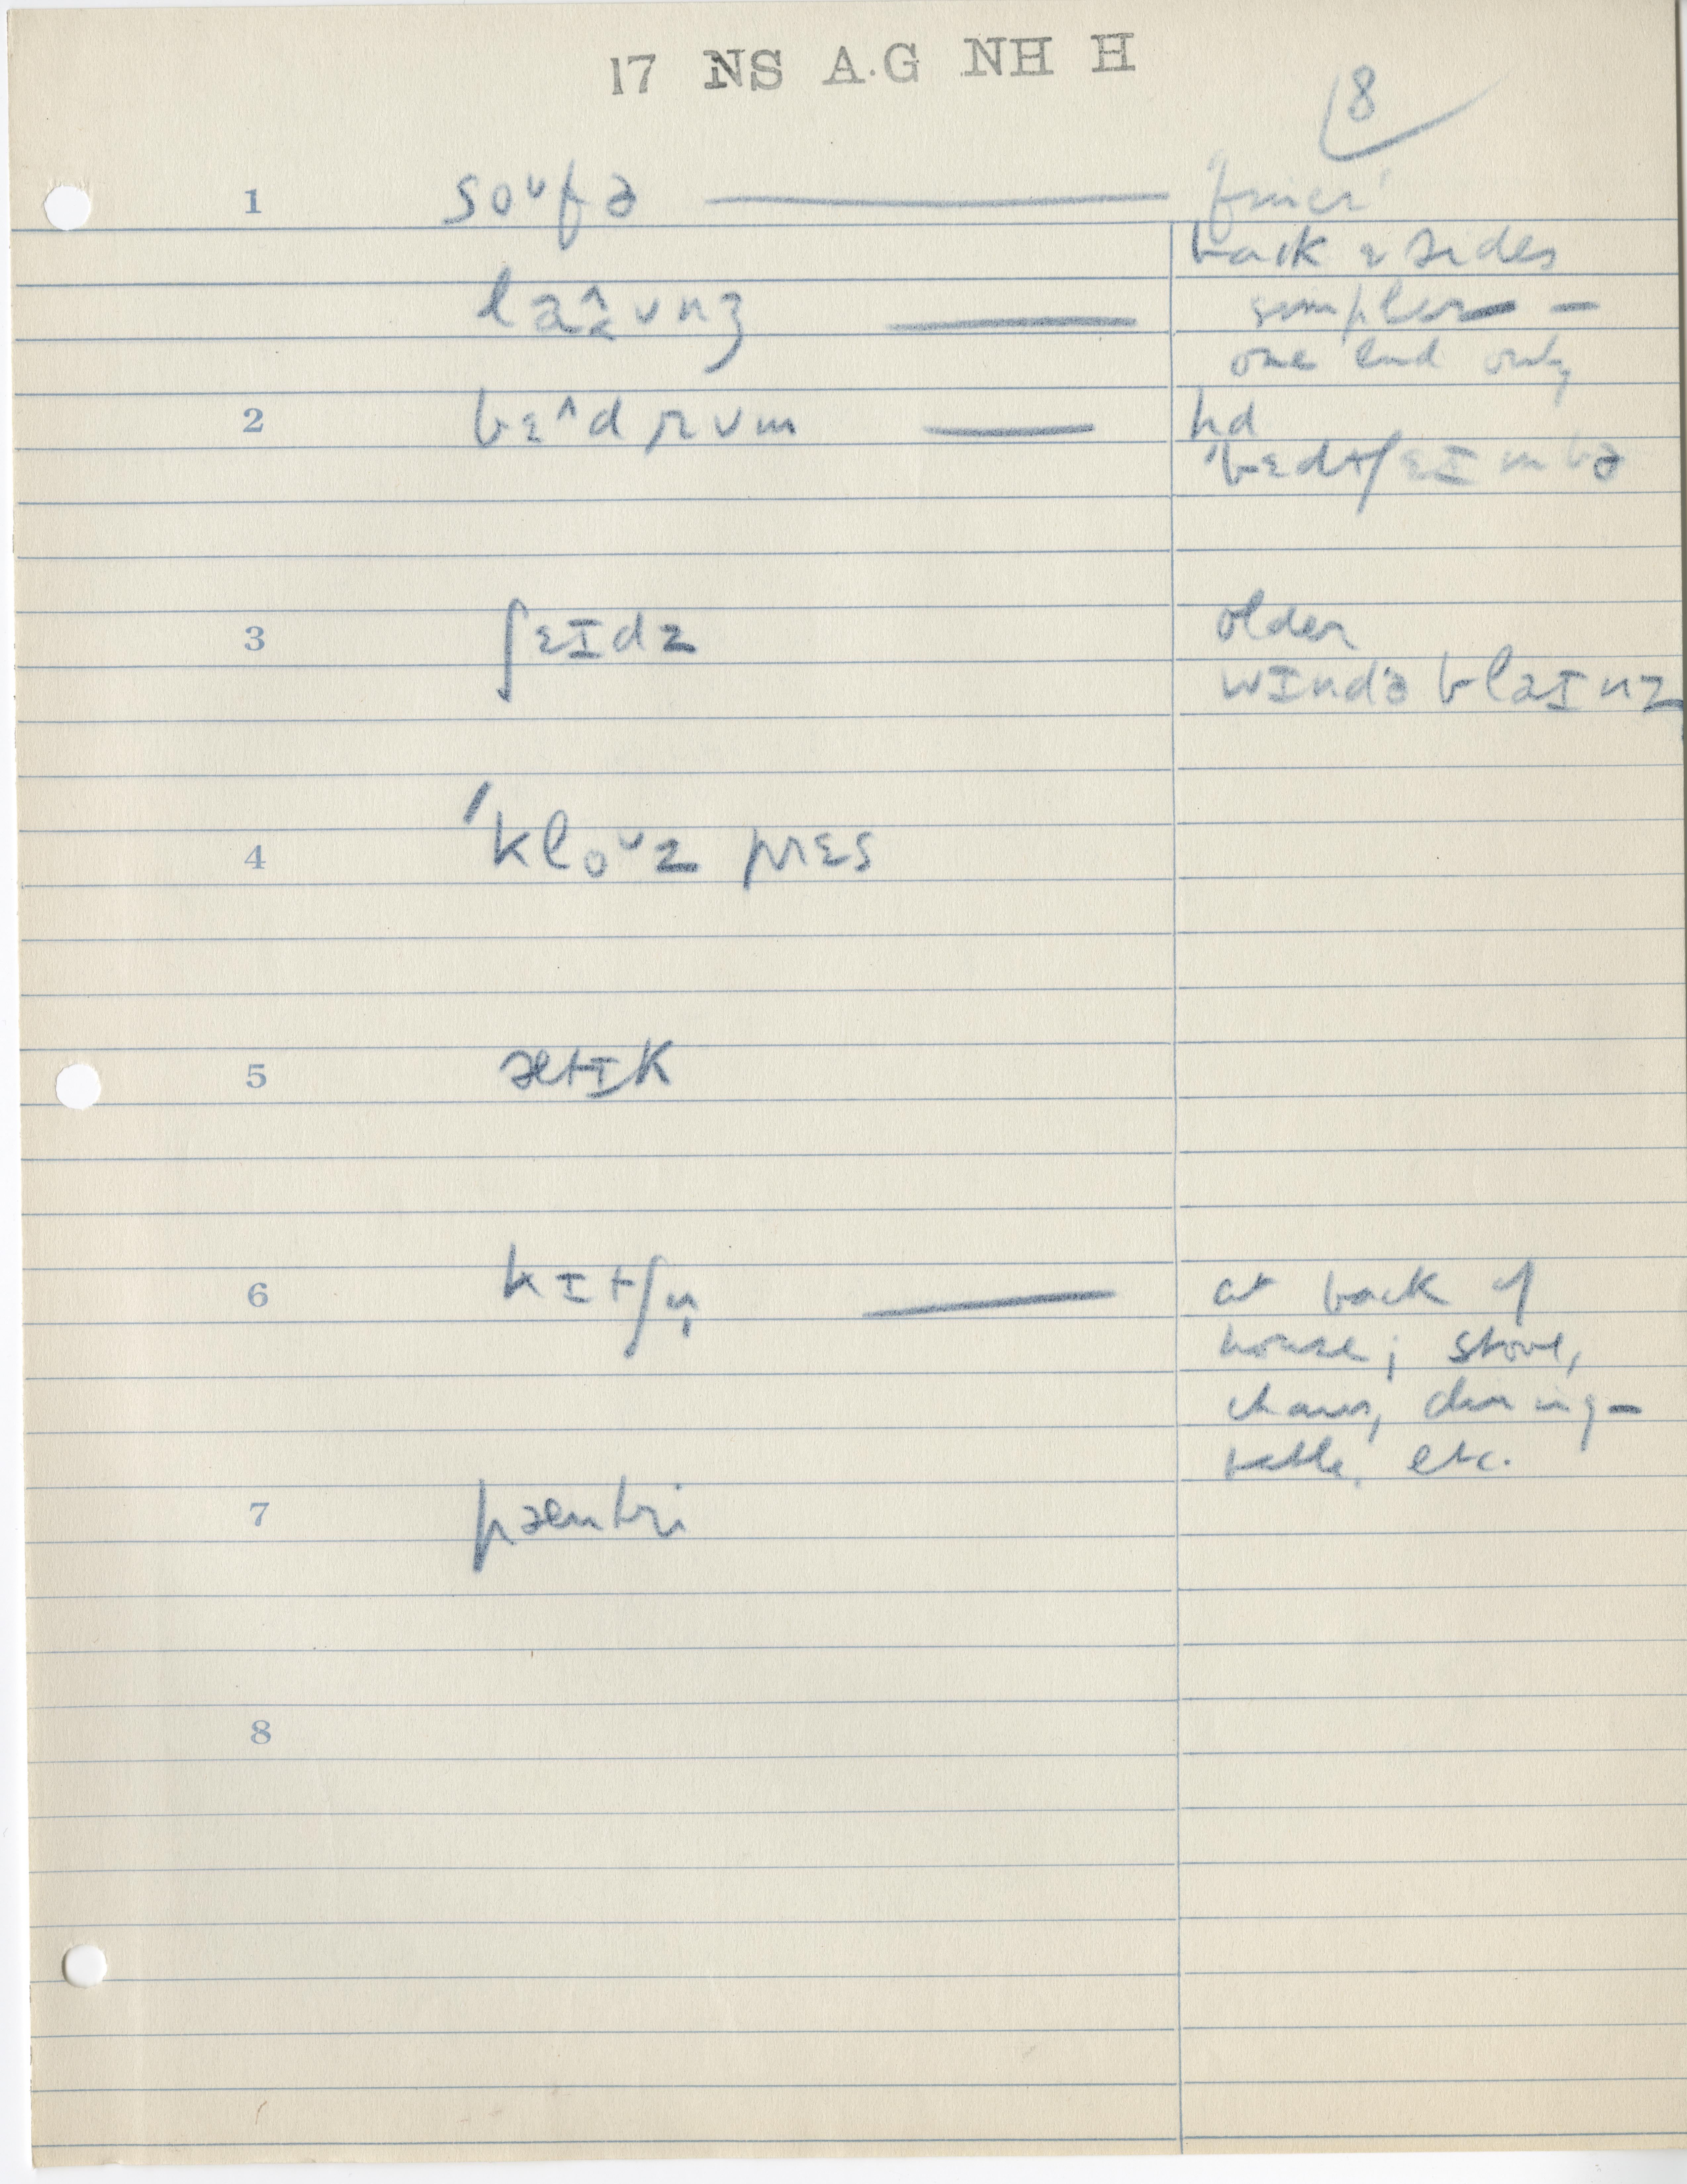 17 NS A.G NH H
8
1 soᵘfə 'finer'
back & sides
laʊnʒ simpler —
one end only
2 bɛ^drʊm hd
'bɛdtʃɛɪmbə
3 ʃɛɪdz older
wɪndə blaɪnz
4 'kloᵘz prɛs
5 ætɪk
6 kɪtʃn̩ at back of
house; stove,
chairs, dining-
table, etc.
7 pæntri
8